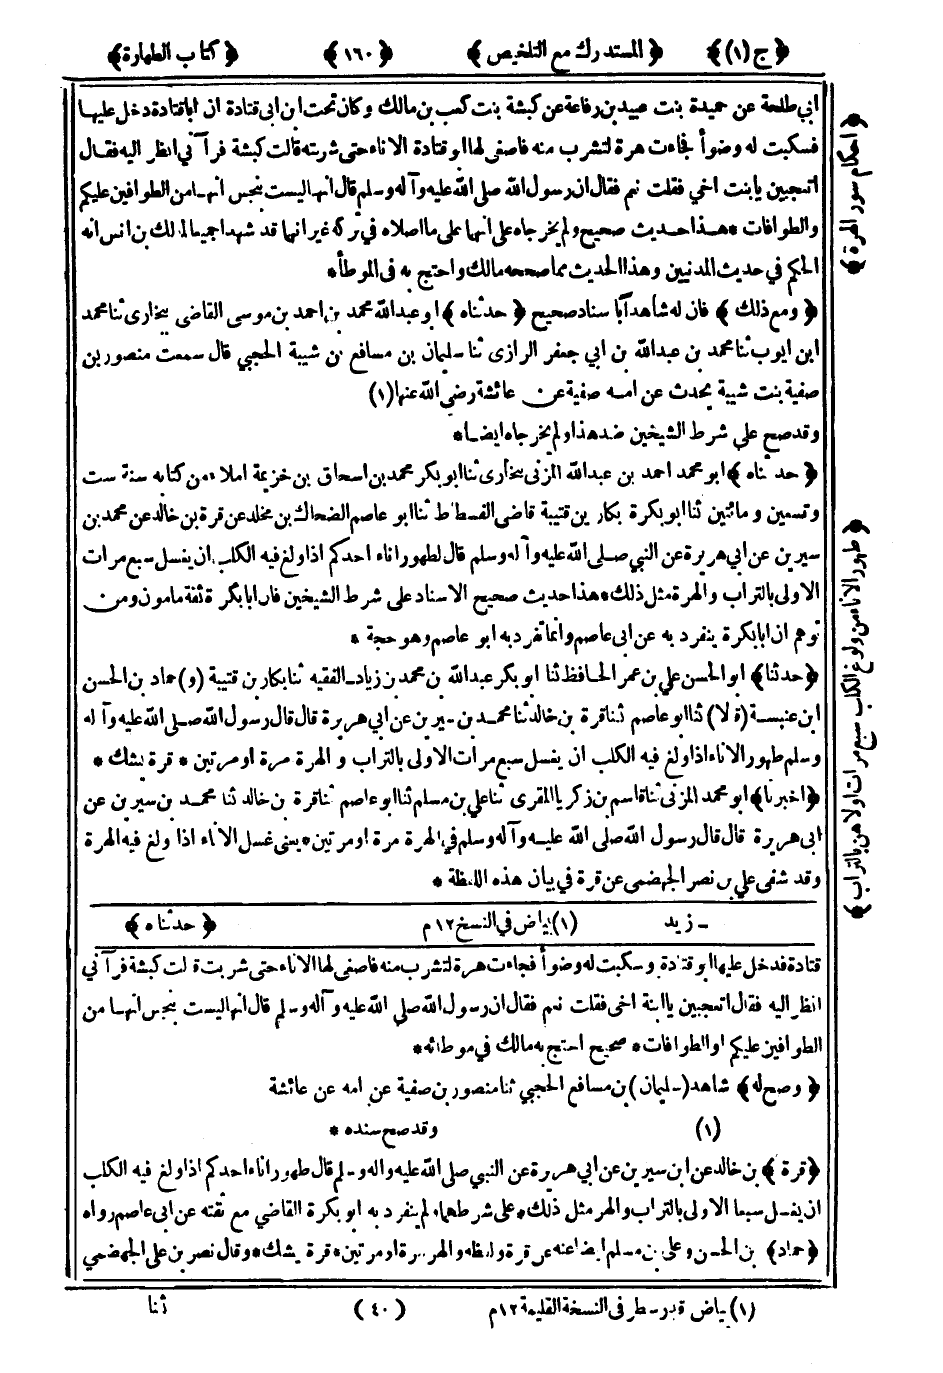 ﴿ ج (١) ﴾ ﴿ المستدرك مع التلخيص ﴾ ﴿ ١٦٠ ﴾ ﴿ كتاب الطهارة ﴾
ابي طلحة عن حميدة بنت عبيد بن رفاعة عن كبشة بنت كعب بن مالك وكان تحت ابن ابى قتادة ان اباقتادة دخل عليها
فسكبت له وضوأ فجاءت هرة لتشرب منه فاصفى لها ابو قتادة الاناء حتى شربته قالت كبشة فرآنى انظر اليه فقال
اتعجبين يا بنت اخي فقلت نعم فقال ان رسول الله صلى الله عليه وآله وسلم قال انها ليست بنجس انها من الطوافين عليكم
والطوافات * هذا حديث صحيح ولم يخرجاه على انهما على ما اصلاه في تركه غير انهما قد شهدا جميعا لمالك بن انس انه
الحكم في حديث المدنيين وهذا الحديث مما صححه مالك واحتج به فى الموطأ *
﴿ ومع ذلك ﴾ فان له شاهدا باسناد صحيح ﴿ حدثناه ﴾ ابو عبدالله محمد بن احمد بن موسى القاضى ببخارى ثنا محمد
ابن ايوب ثنا محمد بن عبدالله بن ابي جعفر الرازى ثنا سليمان بن مسافع بن شيبة الحجبي قال سمعت منصور بن
صفية بنت شيبة يحدث عن امه صفية عن عائشة رضى الله عنها (١)
وقد صح على شرط الشيخين ضد هذا ولم يخرجاه ايضا *
﴿ حدثناه ﴾ ابو محمد احمد بن عبدالله المزنى ببخارى ثنا ابو بكر محمد بن اسحاق بن خزيمة املاء من كتابه سنة ست
وتسعين ومائتين ثنا ابو بكرة بكار بن قتيبة قاضى الفسطاط ثنا ابو عاصم الضحاك بن مخلد عن قرة بن خالد عن محمد بن
سيرين عن ابي هريرة عن النبي صلى الله عليه وآله وسلم قال لطهور اناء احدكم اذا ولغ فيه الكلب ان يغسل سبع مرات
الاولى بالتراب والهرة مثل ذلك * هذا حديث صحيح الاسناد على شرط الشيخين فان ابا بكرة ثقة مامون ومن
توهم ان ابا بكرة ينفرد به عن ابى عاصم وانما تفرد به ابو عاصم وهو حجة *
﴿ حدثنا ﴾ ابو الحسن علي بن عمر الحافظ ثنا ابو بكر عبدالله بن محمد بن زياد الفقيه ثنا بكار بن قتيبة (و) حماد بن الحسن
ابن عنبسة (قالا) ثنا ابو عاصم ثنا قرة بن خالد ثنا محمد بن سيرين عن ابي هريرة قال قال رسول الله صلى الله عليه وآله
وسلم طهور الاناء اذا ولغ فيه الكلب ان يغسل سبع مرات الاولى بالتراب والهرة مرة او مرتين * قرة يشك *
﴿ اخبرنا ﴾ ابو محمد المزنى ثنا قاسم بن زكريا المقرى ثنا علي بن مسلم ثنا ابو عاصم ثنا قرة بن خالد ثنا محمد بن سيرين عن
ابى هريرة قال قال رسول الله صلى الله عليه وآله وسلم في الهرة مرة او مرتين * يعنى غسل الاناء اذا ولغ فيه الهرة
وقد شفى علي بن نصر الجهضمى عن قرة في بيان هذه اللفظة *
ـ زيد (١) بياض في النسخ ١٢ م ﴿ حدثناه ﴾
قتادة فدخل عليها ابو قتادة وسكبت له وضوأ فجاءت هرة لتشرب منه فاصفى لها الاناء حتى شربت قالت كبشة فرآني
انظر اليه فقال اتعجبين يا ابنة اخى فقلت نعم فقال ان رسول الله صلى الله عليه وآله وسلم قال انها ليست بنجس انها من
الطوافين عليكم او الطوافات * صحيح احتج به مالك في موطائه *
﴿ وصح له ﴾ شاهد (سليمان) بن مسافع الحجبي ثنا منصور بن صفية عن امه عن عائشة
(١) وقد صح سنده *
﴿ قرة ﴾ بن خالد عن ابن سيرين عن ابي هريرة عن النبي صلى الله عليه واله وسلم قال طهور اناء احدكم اذا ولغ فيه الكلب
ان يغسل سبعا الاولى بالتراب والهر مثل ذلك * على شرطهما لم ينفرد به ابو بكرة القاضي مع ثقته عن ابى عاصم رواه
﴿ حماد ﴾ بن الحسن وعلى بن مسلم ايضا عنه عن قرة ولفظه والهر مرة او مرتين * قرة يشك * وقال نصر بن على الجهضمي
(١) بياض قدر سطر فى النسخة القليمة ١٢ م (٤٠) ثنا
﴿ احكام سور الهرة ﴾
﴿ طهور الاناء من ولوغ الكلب سبع مرات اولاهن بالتراب ﴾